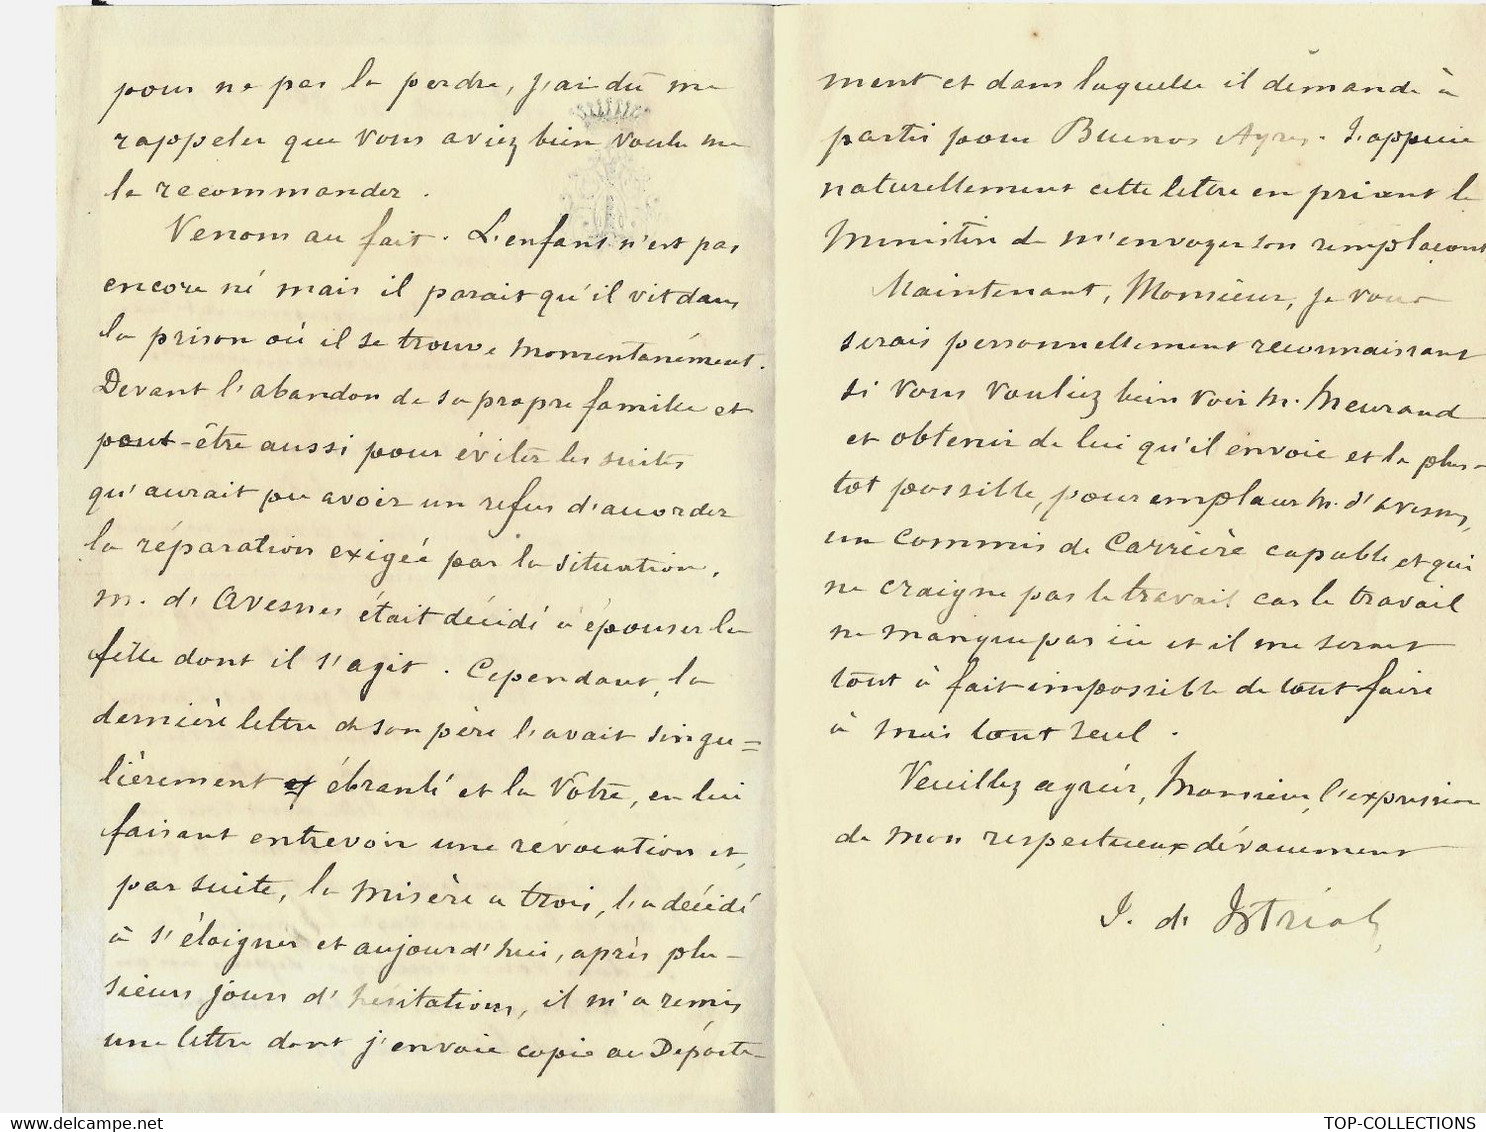 pour ne pas la perdre, j'ai dû me
rappeler que vous aviez bien voulu me
le recommander.
Venons au fait. L'enfant n'est pas
encore né mais il parait qu'il vit dans
la prison où il se trouve momentanément.
Devant l'abandon de sa propre famille et
peut-être aussi pour éviter les suites
qu'aurait pu avoir un refus d'accorder
la réparation exigée par la situation,
M. d'Avesnes était décidé à épouser la
fille dont il s'agit. Cependant, la
dernière lettre de son père l'avait singu=
lièrement ébranlé et la Vôtre, en lui
faisant entrevoir une révocation et,
par suite, la misère a trois, l'a décidé
à s'éloigner et aujourd'hui, après plu-
sieurs jours d'hésitations, il m'a remis
une lettre dont j'envoie copie au Départe-
ment et dans laquelle il demande à
partir pour Buenos Ayres. J'appuie
naturellement cette lettre en priant le
Ministère de m'envoyer son remplaçant
Maintenant, Monsieur, je vous
serais personnellement reconnaissant
si vous vouliez bien voir M. Meurand
et obtenir de lui qu'il envoie et le plus-
tôt possible, pour remplacer M. d'Avesnes,
un Commis de Carrière capable et qui
ne craigne pas le travail car le travail
ne manque pas ici et il me serait
tout à fait impossible de tout faire
à moi tout seul.
Veuillez agréer, Monsieur, l'expression
de mon respectueux dévouement
J. d'
TOP-COLLECTIONS